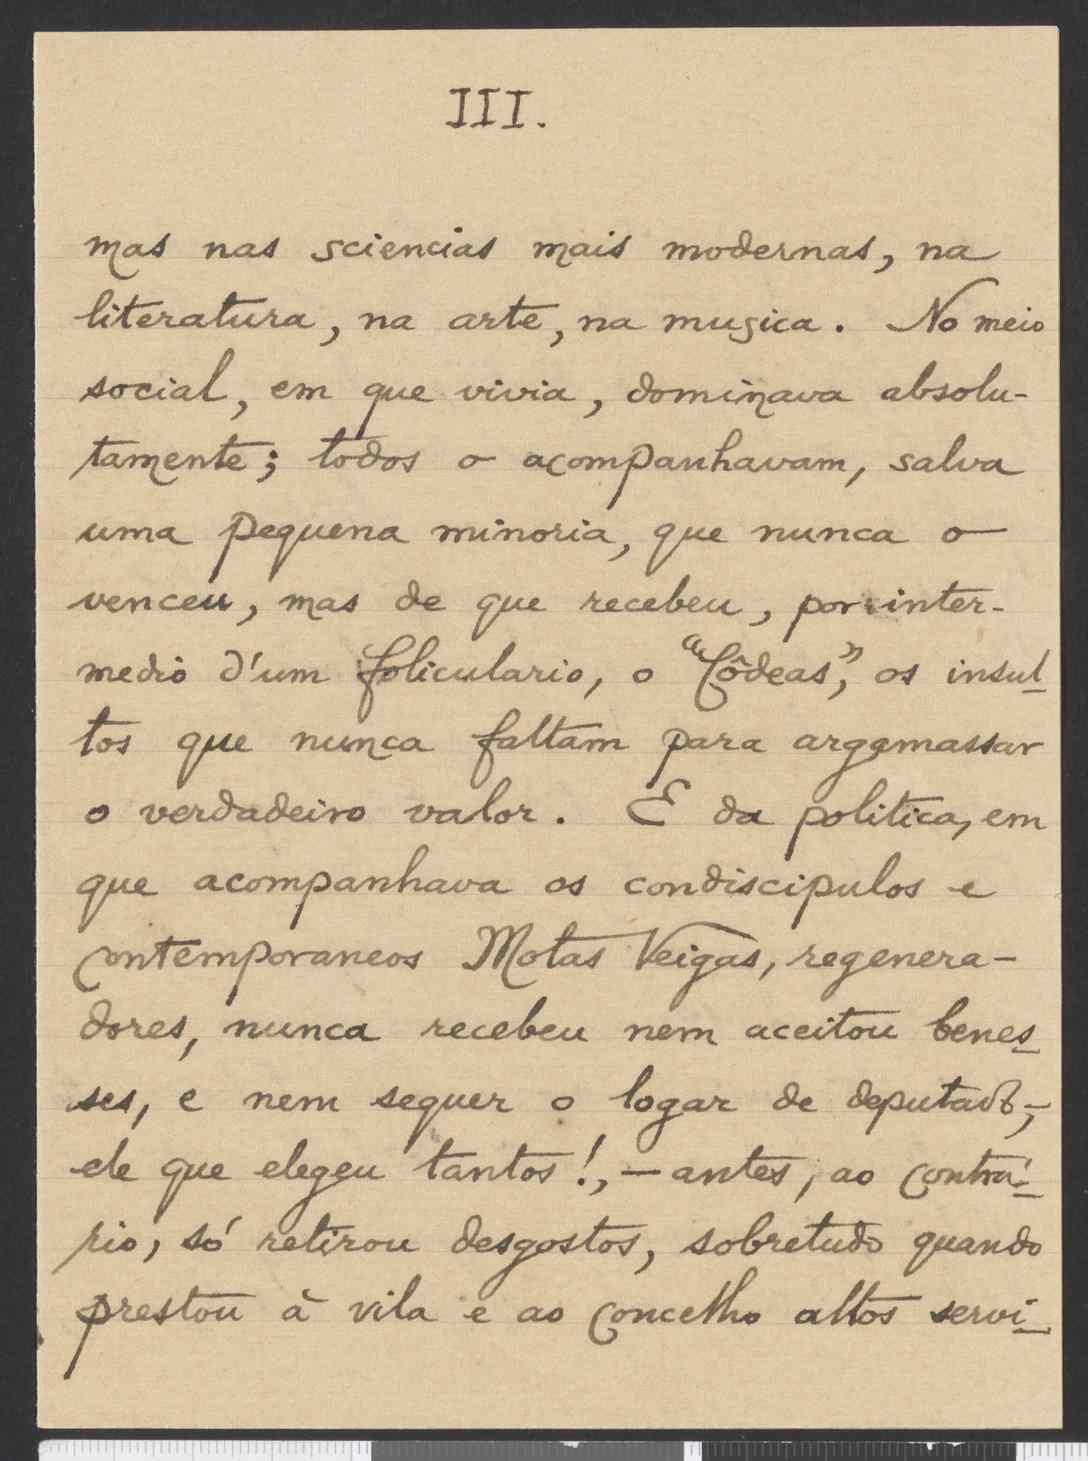 III.
mas nas sciencias mais modernas, na
literatura, na arte, na musica. No meio
social, em que vivia, dominava absolu-
tamente; todos o acompanhavam, salva
uma pequena minoria, que nunca o
venceu, mas de que recebeu, por inter-
medio d'um foliculario, o "Côdeas", os insul-
tos que nunca faltam para argamassar
o verdadeiro valor. E da politica, em
que acompanhava os condiscipulos e
contemporaneos Motas Veigas, regenera-
dores, nunca recebeu nem aceitou benes-
ses, e nem sequer o logar de deputado,-
ele que elegeu tantos!,-antes, ao contrá-
rio, só retirou desgostos, sobretudo quando
prestou à vila e ao concelho altos servi-